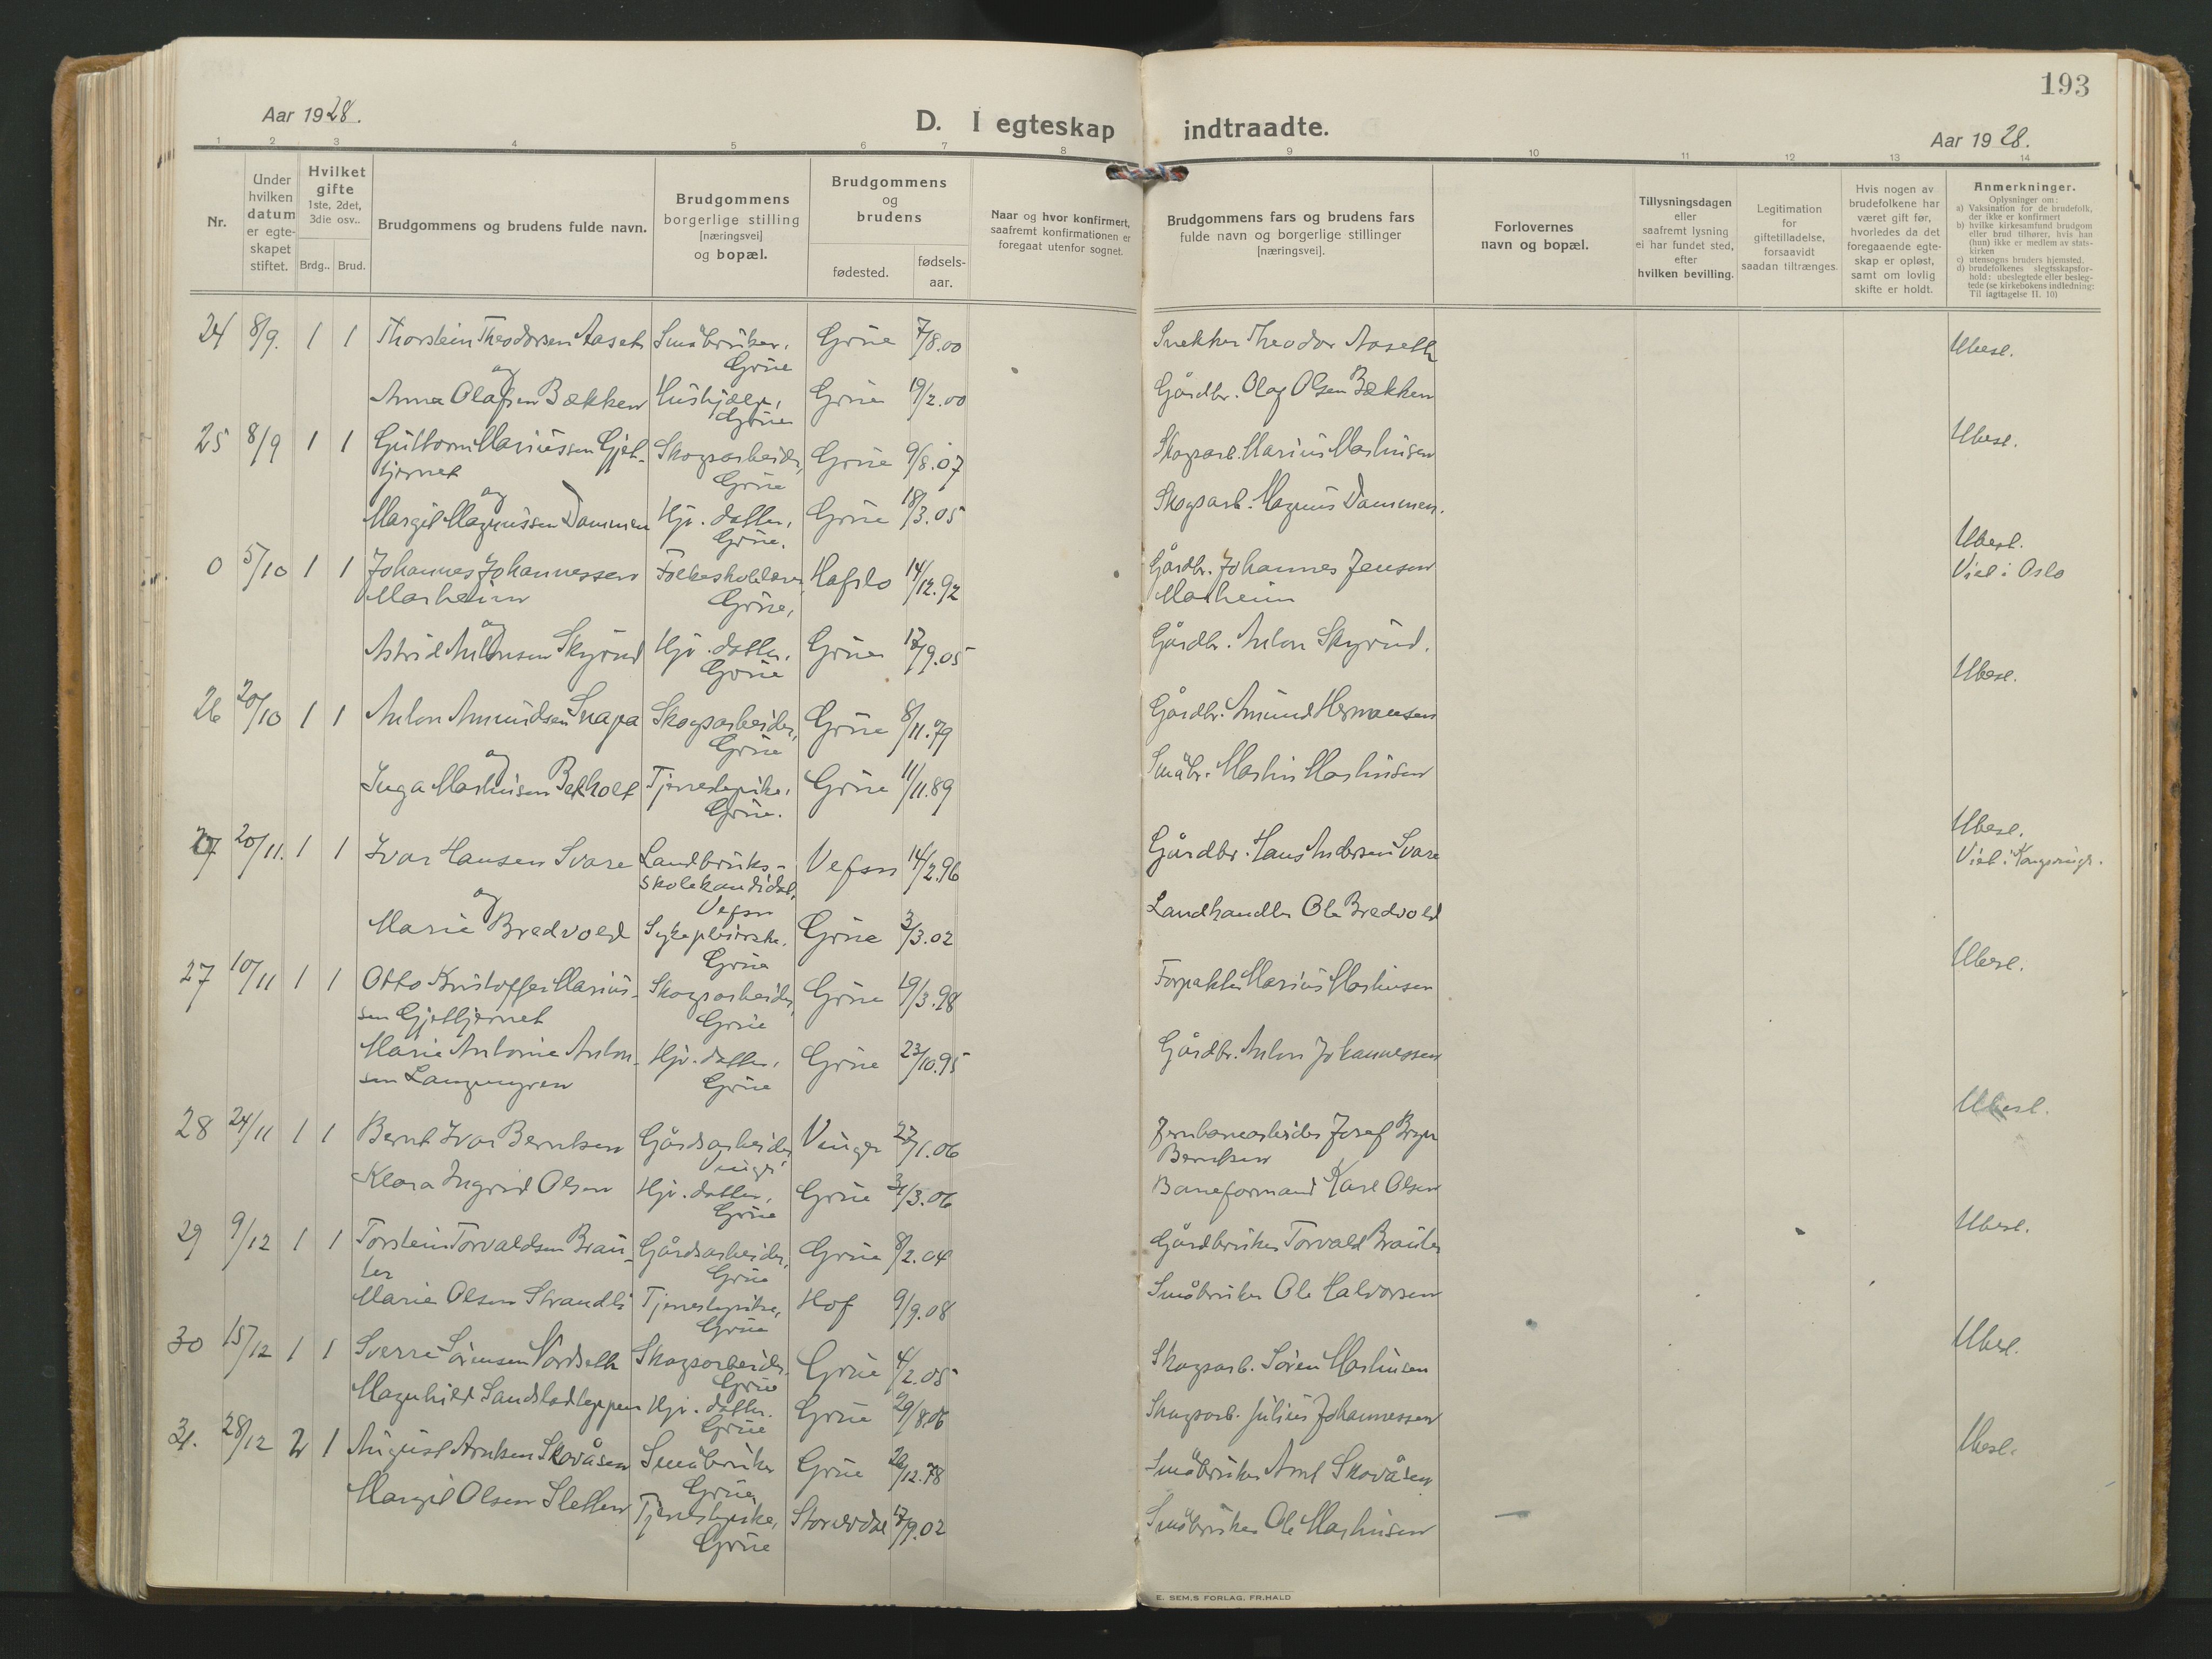 193
Aar 1928.
D. I egteskap indtraadte.
Aar 1928.
1 2 3 4 5 6 7 8 9 10 11 12 13 14
Nr.
Under
hvilken
datum
er egte-
skapet
stiftet.
Hvilket
gifte
1ste, 2det,
3die osv..
Brdg.. Brud.
Brudgommens og brudens fulde navn.
Brudgommens
borgerlige stilling
[næringsvei]
og bopæl.
Brudgommens
og
brudens
fødested.
fødsels-
aar.
Naar og hvor konfirmert,
saafremt konfirmationen er
foregaat utenfor sognet.
Brudgommens fars og brudens fars
fulde navn og borgerlige stillinger
[næringsvei].
Forlovernes
navn og bopæl.
Tillysningsdagen
eller
saafremt lysning
ei har fundet sted,
efter
hvilken bevilling.
Legitimation
for
giftetilladelse,
forsaavidt
saadan tiltrænges.
Hvis nogen av
brudefolkene har
været gift før,
hvorledes da det
foregaaende egte-
skap er opløst,
samt om lovlig
skifte er holdt.
Anmerkninger.
Oplysninger om:
a) Vaksination for de brudefolk,
der ikke er konfirmert
b) hvilke kirkesamfund brudgom
eller brud tilhører, hvis han
(hun) ikke er medlem av stats-
kirken
c) utensogns bruders hjemsted.
d) brudefolkenes slegtsskapsfor-
hold: ubeslegtede eller besleg-
tede (se kirkebokens indledning:
Til iagttagelse II. 10)
24 8/9. 1 1 Thorstein Theodorsen Aaseth Småbruker, Grue 7/8.00 Snekker Theodor Aaseth Ubesl.
Grue
og
Anna Olafsen Bækken Hushjælp, Grue 19/2.00 Gårdbr. Olaf Olsen Bækken
Grue
25 8/9 1 1 Guttorm Mariussen Gjet- Skogsarbeider, Grue 9/8.07 Skogsarb. Marius Martinsen Ubesl.
tjernet Grue
og
Margit Magnussen Dammen Hjv. datter, Grue 18/3.05 Skogsarb. Magnus Dammen.
Grue.
0 5/10 1 1 Johannes Johannessen Folkeskolelærer, Hafslo 14/12.92 Gårdbr. Johannes Jensen Ubesl.
Marheim Grue, Marheim Viet i Oslo
og
Astrid Antonsen Skyrud Hjv. datter, Grue 17/9.05 Gårdbr. Anton Skyrud.
Grue
26 20/10 1 1 Anton Amundsen Snapa Skogsarbeider, Grue 8/11.79 Gårdbr. Amund Hermansen Ubesl.
Grue
og
Inga Martinsen Bekholt Tjenestepike, Grue 11/11.89 Småbr. Martin Martinsen
Grue.
20/11. 1 1 Ivar Hansen Svare Landbruks- Vefsn 14/2.96 Gårdbr. Hans Andersen Svare Ubesl.
skolekandidat, Viet i Kongsvinger.
Vefsn
og
Marie Bredvold Sykepleierske, Grue 3/3.02 Landhandler Ole Bredvold
Grue
27 10/11 1 1 Otto Kristoffer Marius- Skogsarbeider, Grue 19/3.98 Forpakter Marius Martinsen Ubesl.
sen Gjettjernet Grue
Marie Antonie Anton- Hjv. datter, Grue 23/10.95 Gårdbr. Anton Johannessen
sen Langmyren Grue
28 24/11 1 1 Bernt Ivar Berntsen Gårdsarbeider Vinger 27/1.06 Jernbanearbeider Josef Bryn Ubesl.
Vinger Berntsen
Klara Ingrid Olsen Hjv. datter, Grue 31/3.06 Baneformand Karl Olsen
Grue
29 9/12 1 1 Torstein Torvaldsen Brau- Gårdsarbeider, Grue 8/2.04 Gårdbruker Torvald Brauter Ubesl.
ter Grue
Marie Olsen Strandli Tjenestepike, Hof 9/9.08 Småbruker Ole Halvorsen
Grue
30 15/12 1 1 Sverre Sørensen Nordseth Skogsarbeider, Grue 4/2.05 Skogsarb. Søren Martinsen Ubesl.
Grue
Magnhild Sandsladteppen Hjv. datter. Grue 29/8.06 Skogsarb. Julius Johannessen
Grue
31. 28/12 2 1 August Arntsen Skovåsen Småbruker Grue 26/12.78 Småbruker Arnt Skovåsen Ubesl.
Grue
Margit Olsen Sletten Tjenestepike, Storelvdal 17/9.02 Småbruker Ole Martinsen
Grue
E. SEM,S FORLAG, FR.HALD